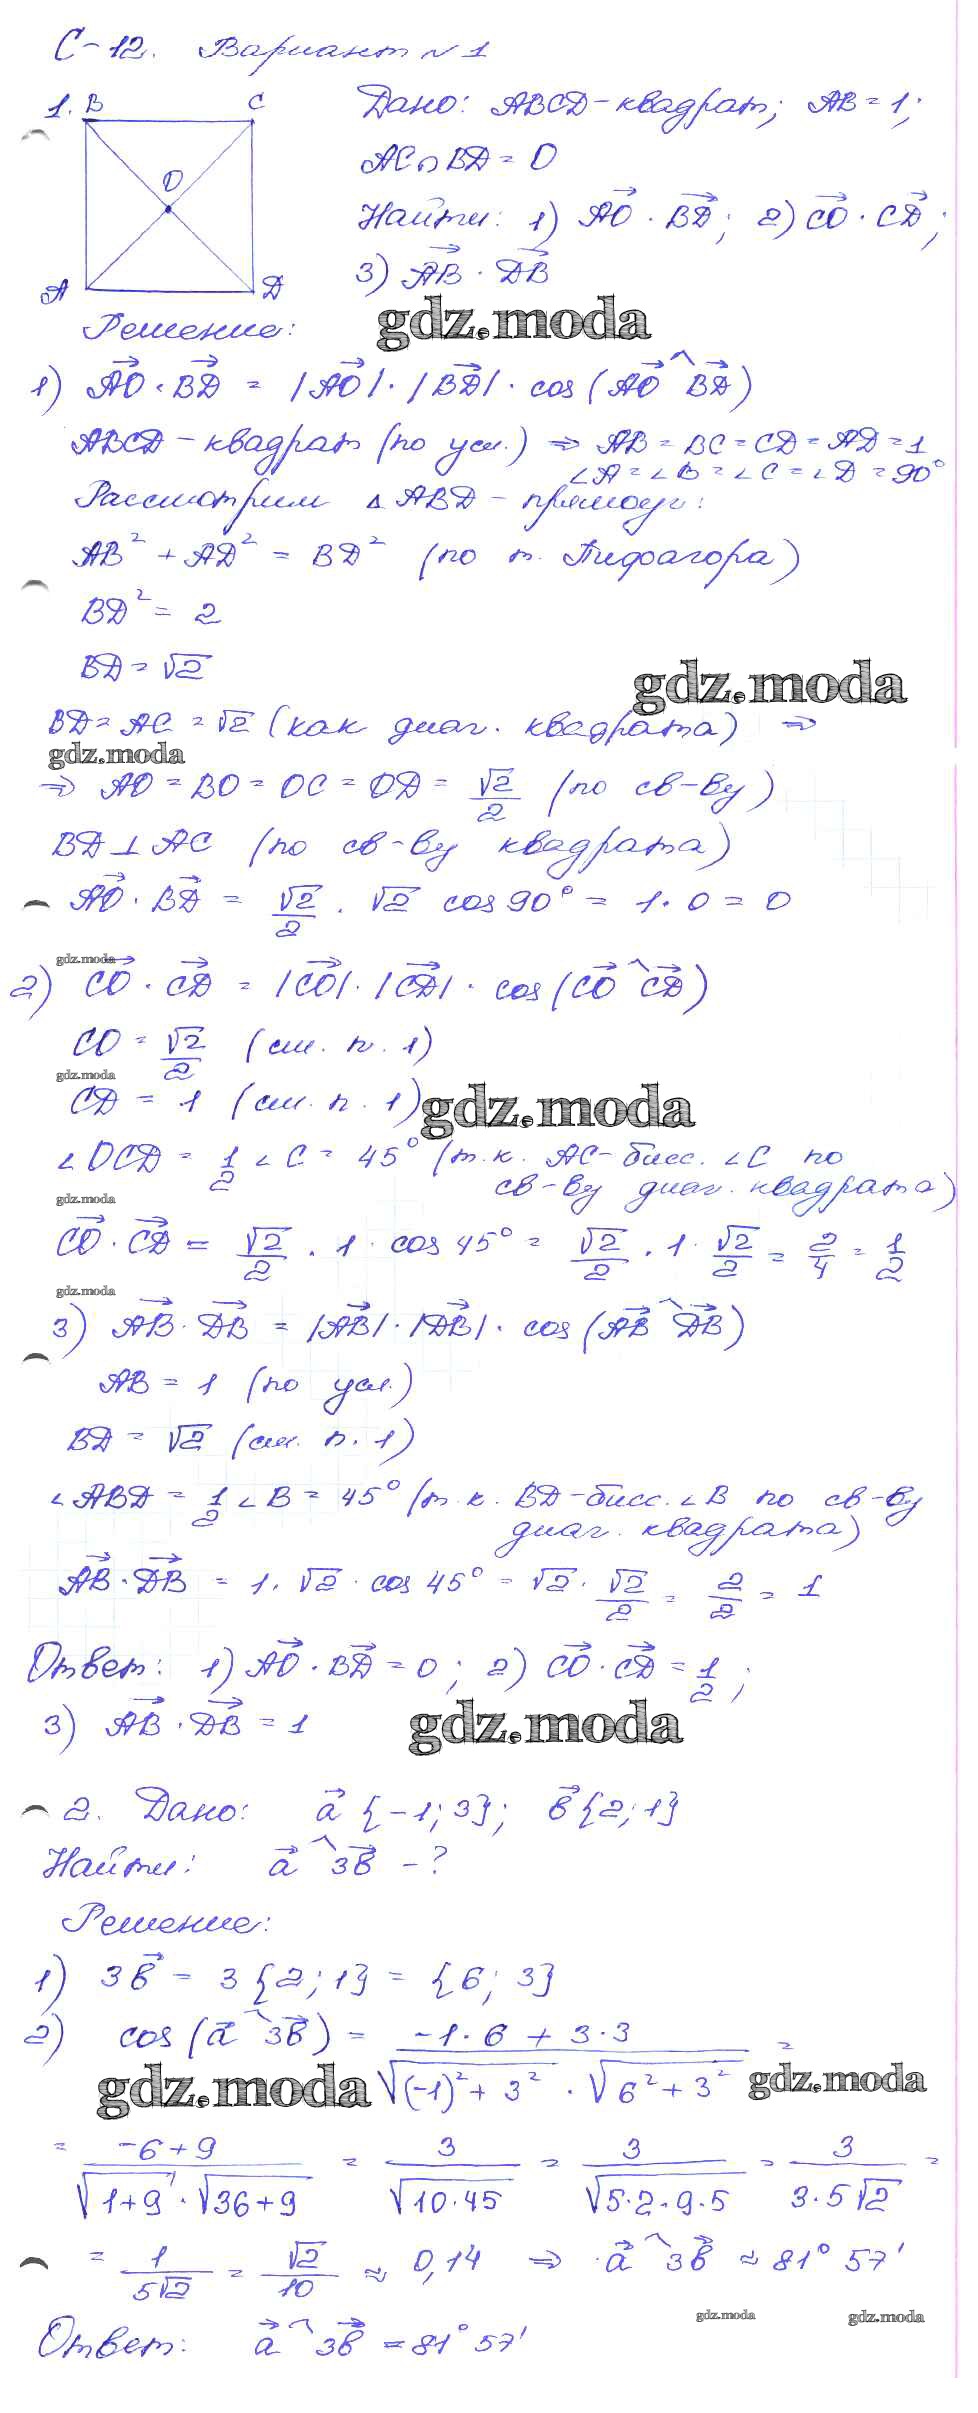 С-12. Вариант №1
1. B C
O
A D
Дано: ABCD-квадрат; AB=1;
AC∩BD=O
Найти: 1) AO→ · BD→; 2) CO→ · CD→;
3) AB→ · DB→
gdz.moda
Решение:
1) AO→ · BD→ = |AO→| · |BD→| · cos(AO→ ^ BD→)
ABCD - квадрат (по усл.) ⇒ AB = BC = CD = AD = 1
∠A = ∠B = ∠C = ∠D = 90°
Рассмотрим △ABD - прямоуг:
AB² + AD² = BD² (по т. Пифоагора)
BD² = 2
BD = √2
gdz.moda
BD = AC = √2 (как диаг. квадрата) ⇒
gdz.moda
⇒ AO = BO = OC = OD = √2/2 (по св-ву)
BD ⊥ AC (по св-ву квадрата)
AO→ · BD→ = √2/2 · √2 cos 90° = 1 · 0 = 0
gdz.moda
2) CO→ · CD→ = |CO→| · |CD→| · cos(CO→ ^ CD→)
CO = √2/2 (см. п. 1)
gdz.moda
CD = 1 (см. п. 1)
gdz.moda
∠OCD = 1/2 ∠C = 45° (т.к. AC-бисс. ∠C по
св-ву диаг. квадрата)
gdz.moda
CO→ · CD→ = √2/2 · 1 · cos 45° = √2/2 · 1 · √2/2 = 2/4 = 1/2
gdz.moda
3) AB→ · DB→ = |AB→| · |DB→| · cos(AB→ ^ DB→)
AB = 1 (по усл.)
BD = √2 (см. п. 1)
∠ABD = 1/2 ∠B = 45° (т.к. BD-бисс. ∠B по св-ву
диаг. квадрата)
AB→ · DB→ = 1 · √2 · cos 45° = √2 · √2/2 = 2/2 = 1
Ответ: 1) AO→ · BD→ = 0; 2) CO→ · CD→ = 1/2;
3) AB→ · DB→ = 1
gdz.moda
2. Дано: a→ {-1; 3}; b→ {2; 1}
Найти: a→ ^ 3b→ - ?
Решение:
1) 3b→ = 3{2; 1} = {6; 3}
2) cos(a→ ^ 3b→) = (-1 · 6 + 3 · 3)/(√((-1)² + 3²) · √(6² + 3²)) =
gdz.moda
gdz.moda
= (-6+9)/(√(1+9) · √(36+9)) = 3/√(10·45) = 3/√(5·2·9·5) = 3/(3·5√2) =
= 1/(5√2) = √2/10 ≈ 0,14 ⇒ a→ ^ 3b→ ≈ 81° 57'
gdz.moda
gdz.moda
Ответ: a→ ^ 3b→ = 81° 57'